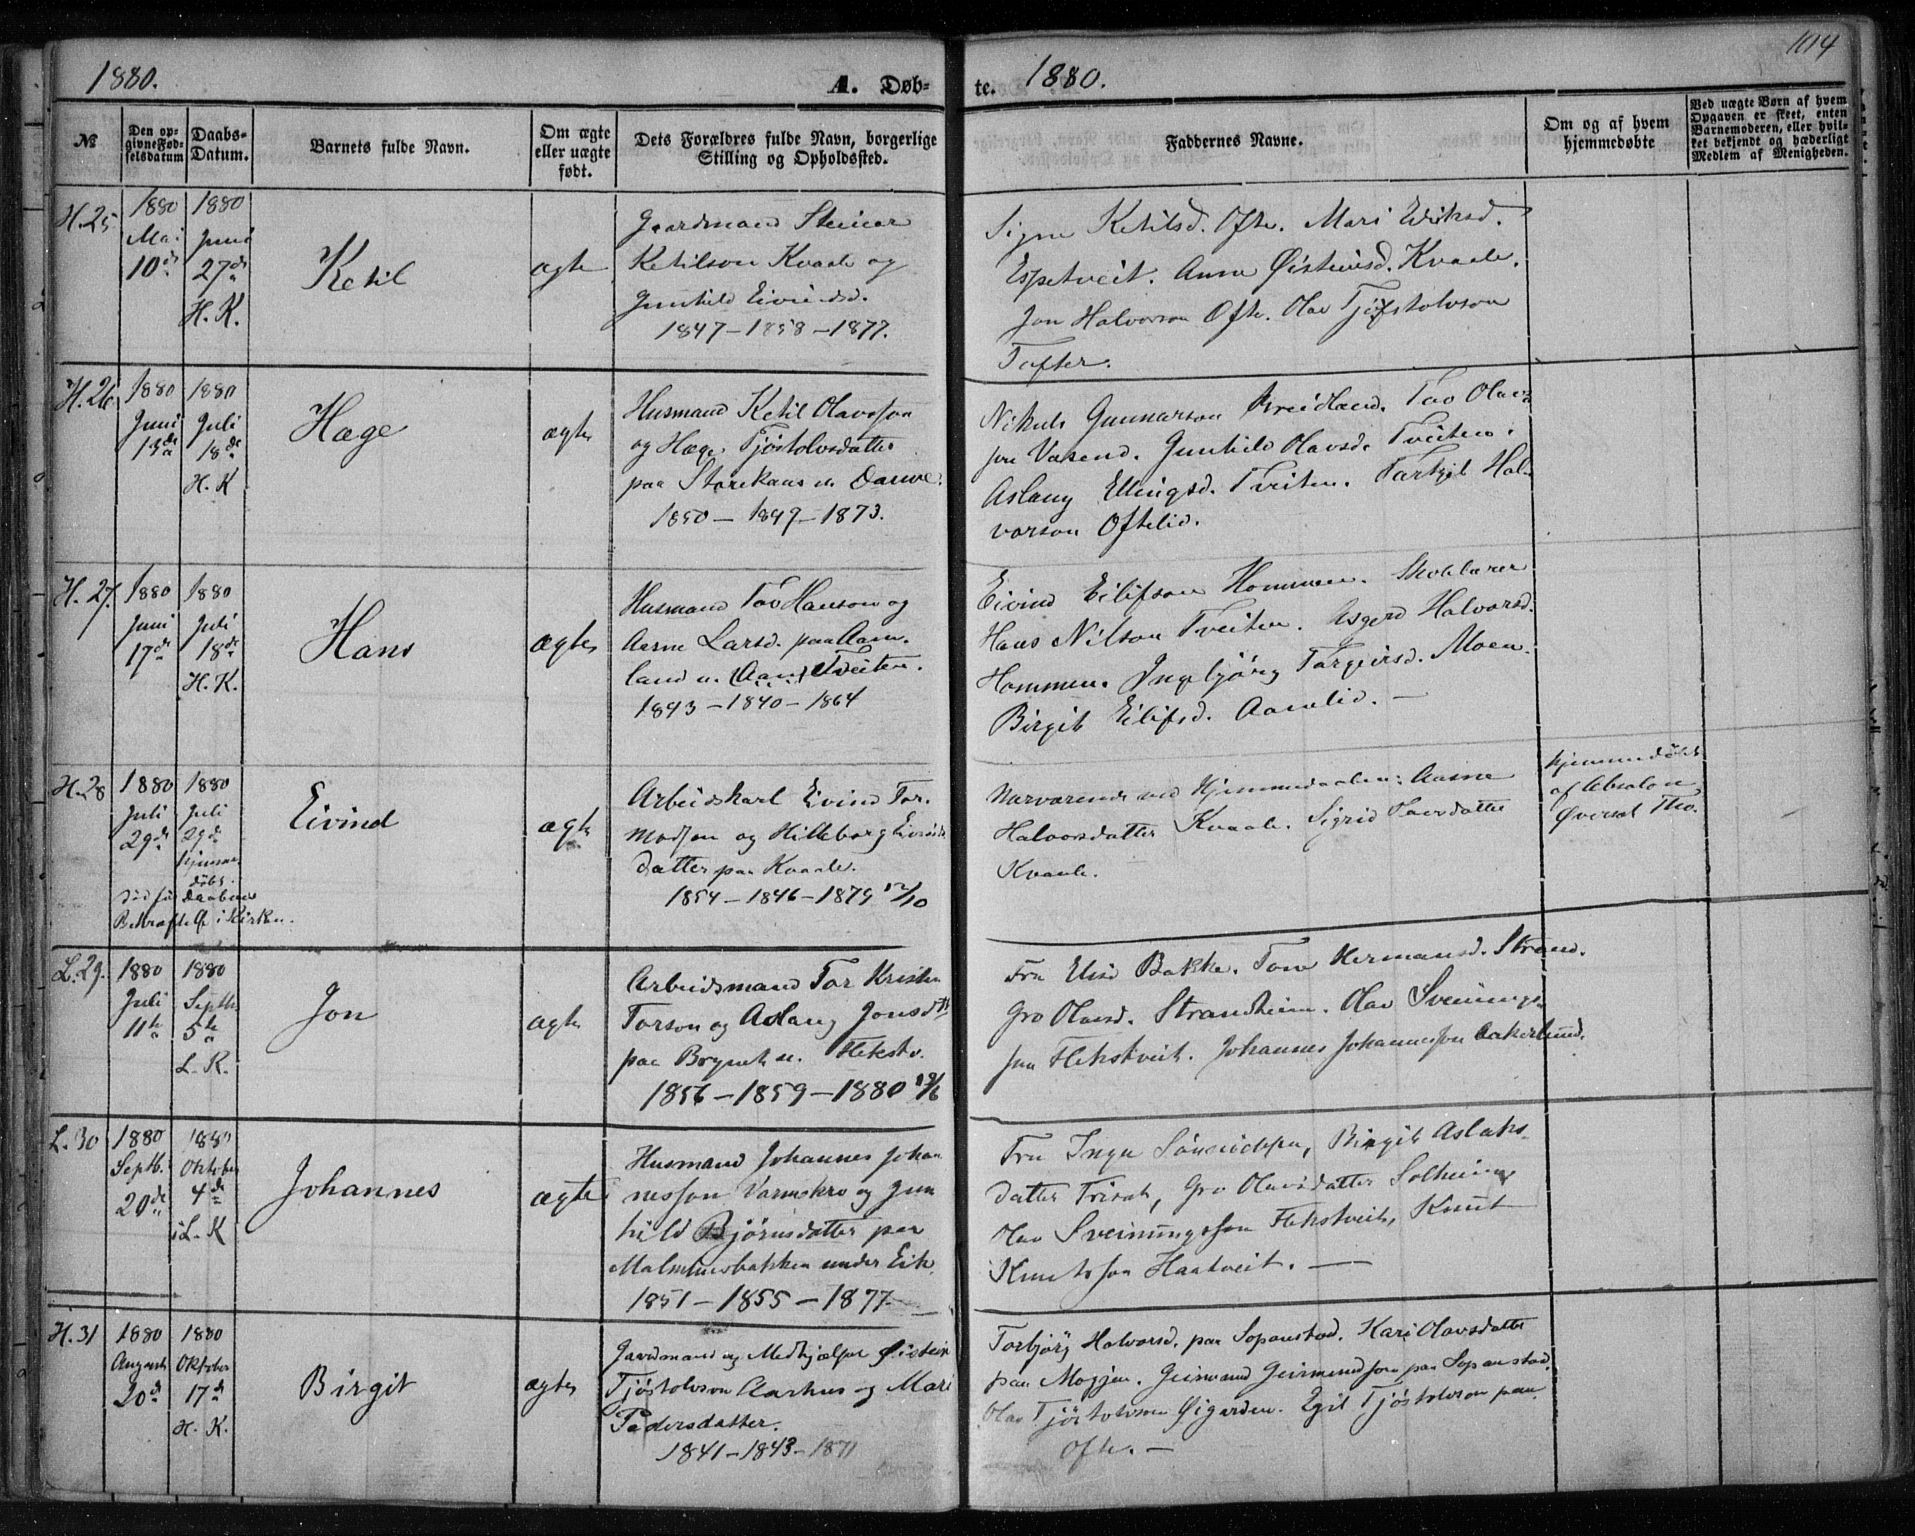 1880. A. Døb- te. 1880. 104
№
Den op-
givne Fød-
selsdatum
Daabs-
Datum.
Barnets fulde Navn.
Om ægte
eller uægte
født.
Dets Forældres fulde Navn, borgerlige
Stilling og Opholdssted.
Faddernes Navne.
Om og af hvem
hjemmedøbte
Ved uægte Børn af hvem
Opgaven er skeet, enten
Barnemoderen, eller hvil-
ket bekjendt og hæderligt
Medlem af Menigheden.
H. 25
1880
Mai
10de
1880
Juni
27de
H. K.
Ketil
ægte
Gaardmand Steinar
Ketilson Kvaale og
Gunhild Eivindsd.
1847 - 1858 - 1877.
Signe Ketilsd. Ofte. Mari Eriksd.
Espetveit. Anne Øisteinsd. Kvaale.
Jon Halvorson Ofte. Olav Tjøstolvson
Tofter.
H. 26
1880
Juni
13de
1880
Juli
18de
H. K
Hæge
ægte
Husmand Ketil Olavsson
og Hæge Tjøstolvsdatter
paa
1850 - 1849 - 1873.
Nikuls Gunnarson Breidland. Tov Olav-
son Vasend. Gunhild Olavsd. Tveiten.
Aslaug Ellingsd. Tveiten. Tarkjil Hal-
vorson Oftelid.
H. 27.
1880
Juni
17de
1880
Juli
18de
H. K.
Hans
ægte
Husmand Tov Hanson og
Aasne Larsd. paa Aam-
land u. (Aam) Tveiten.
1843 - 1840 - 1864
Eivind Eilifson Hommen. Skolelærer
Hans Nilson Tveiten. Asgerd Halvorsd.
Hommen. Ingebjørg Torgeirsd. Moen.
Birgit Eilifsd. Aamlid. —
H. 28
1880
Juli
29de
1880
Juli
29de
hjemme-
døbt.
død før Daabens
Bekræftelse i Kirken.
Eivind
ægte
Arbeidskarl Eivind Tor-
modson og Hilleborg Eivinds
datter paa Kvaale.
1854 - 1846 - 1879 12/10
Nærværende ved Hjemmedaaben: Aasne
Halvorsdatter Kvaale. Sigrid Tovsdatter
Kvaale.
hjemmedøbt
af Absalon
Øversat Tho.
L. 29.
1880
Juli
11te
1880
Septbr
5te
L. K.
Jon
ægte
Arbeidsmand Tor Kristen
Torson og Aslaug Jonsdtr
paa Brynet u. Flekstv.
1856 - 1859 - 1880
Fru Elise Bakke. Tone Hermansd. Strand.
Gro Olavsd. Strandheim. Olav Sveinungs-
son Flekstveit. Johannes Johannesson Aakerlund.
L. 30
1880
Septb.
20de
1880
Oktober
4de
i L. K
Johannes
ægte
Husmand Johannes Johan
nesson Varmekro og Gun
hild Bjørnsdatter paa
Malmnesbakken under Eik
1851 - 1855 - 1877
Fru Inga Birgit Aslaks-
datter Trisæt, Gro Olavsdatter Solheim
Olav Sveinungsson Flekstveit, Knut
Knutsson Haatveit. —
H. 31
1880
August
20de
1880
Oktober
17de
H. K.
Birgit
ægte
Gaardmand og Medhjælper Øistein
Tjøstolvson Aarhus og Mari
Pedersdatter.
1841 - 1843 - 1871
Torbjørg Halvorsd. paa Sopanstad. Kari Olavsdatter
paa Mogjen. Geirmund Geirmundson paa Sopanstad.
Olav Tjøstolvson Øigarden. Egil Tjøstolvson paa
Ofte. —